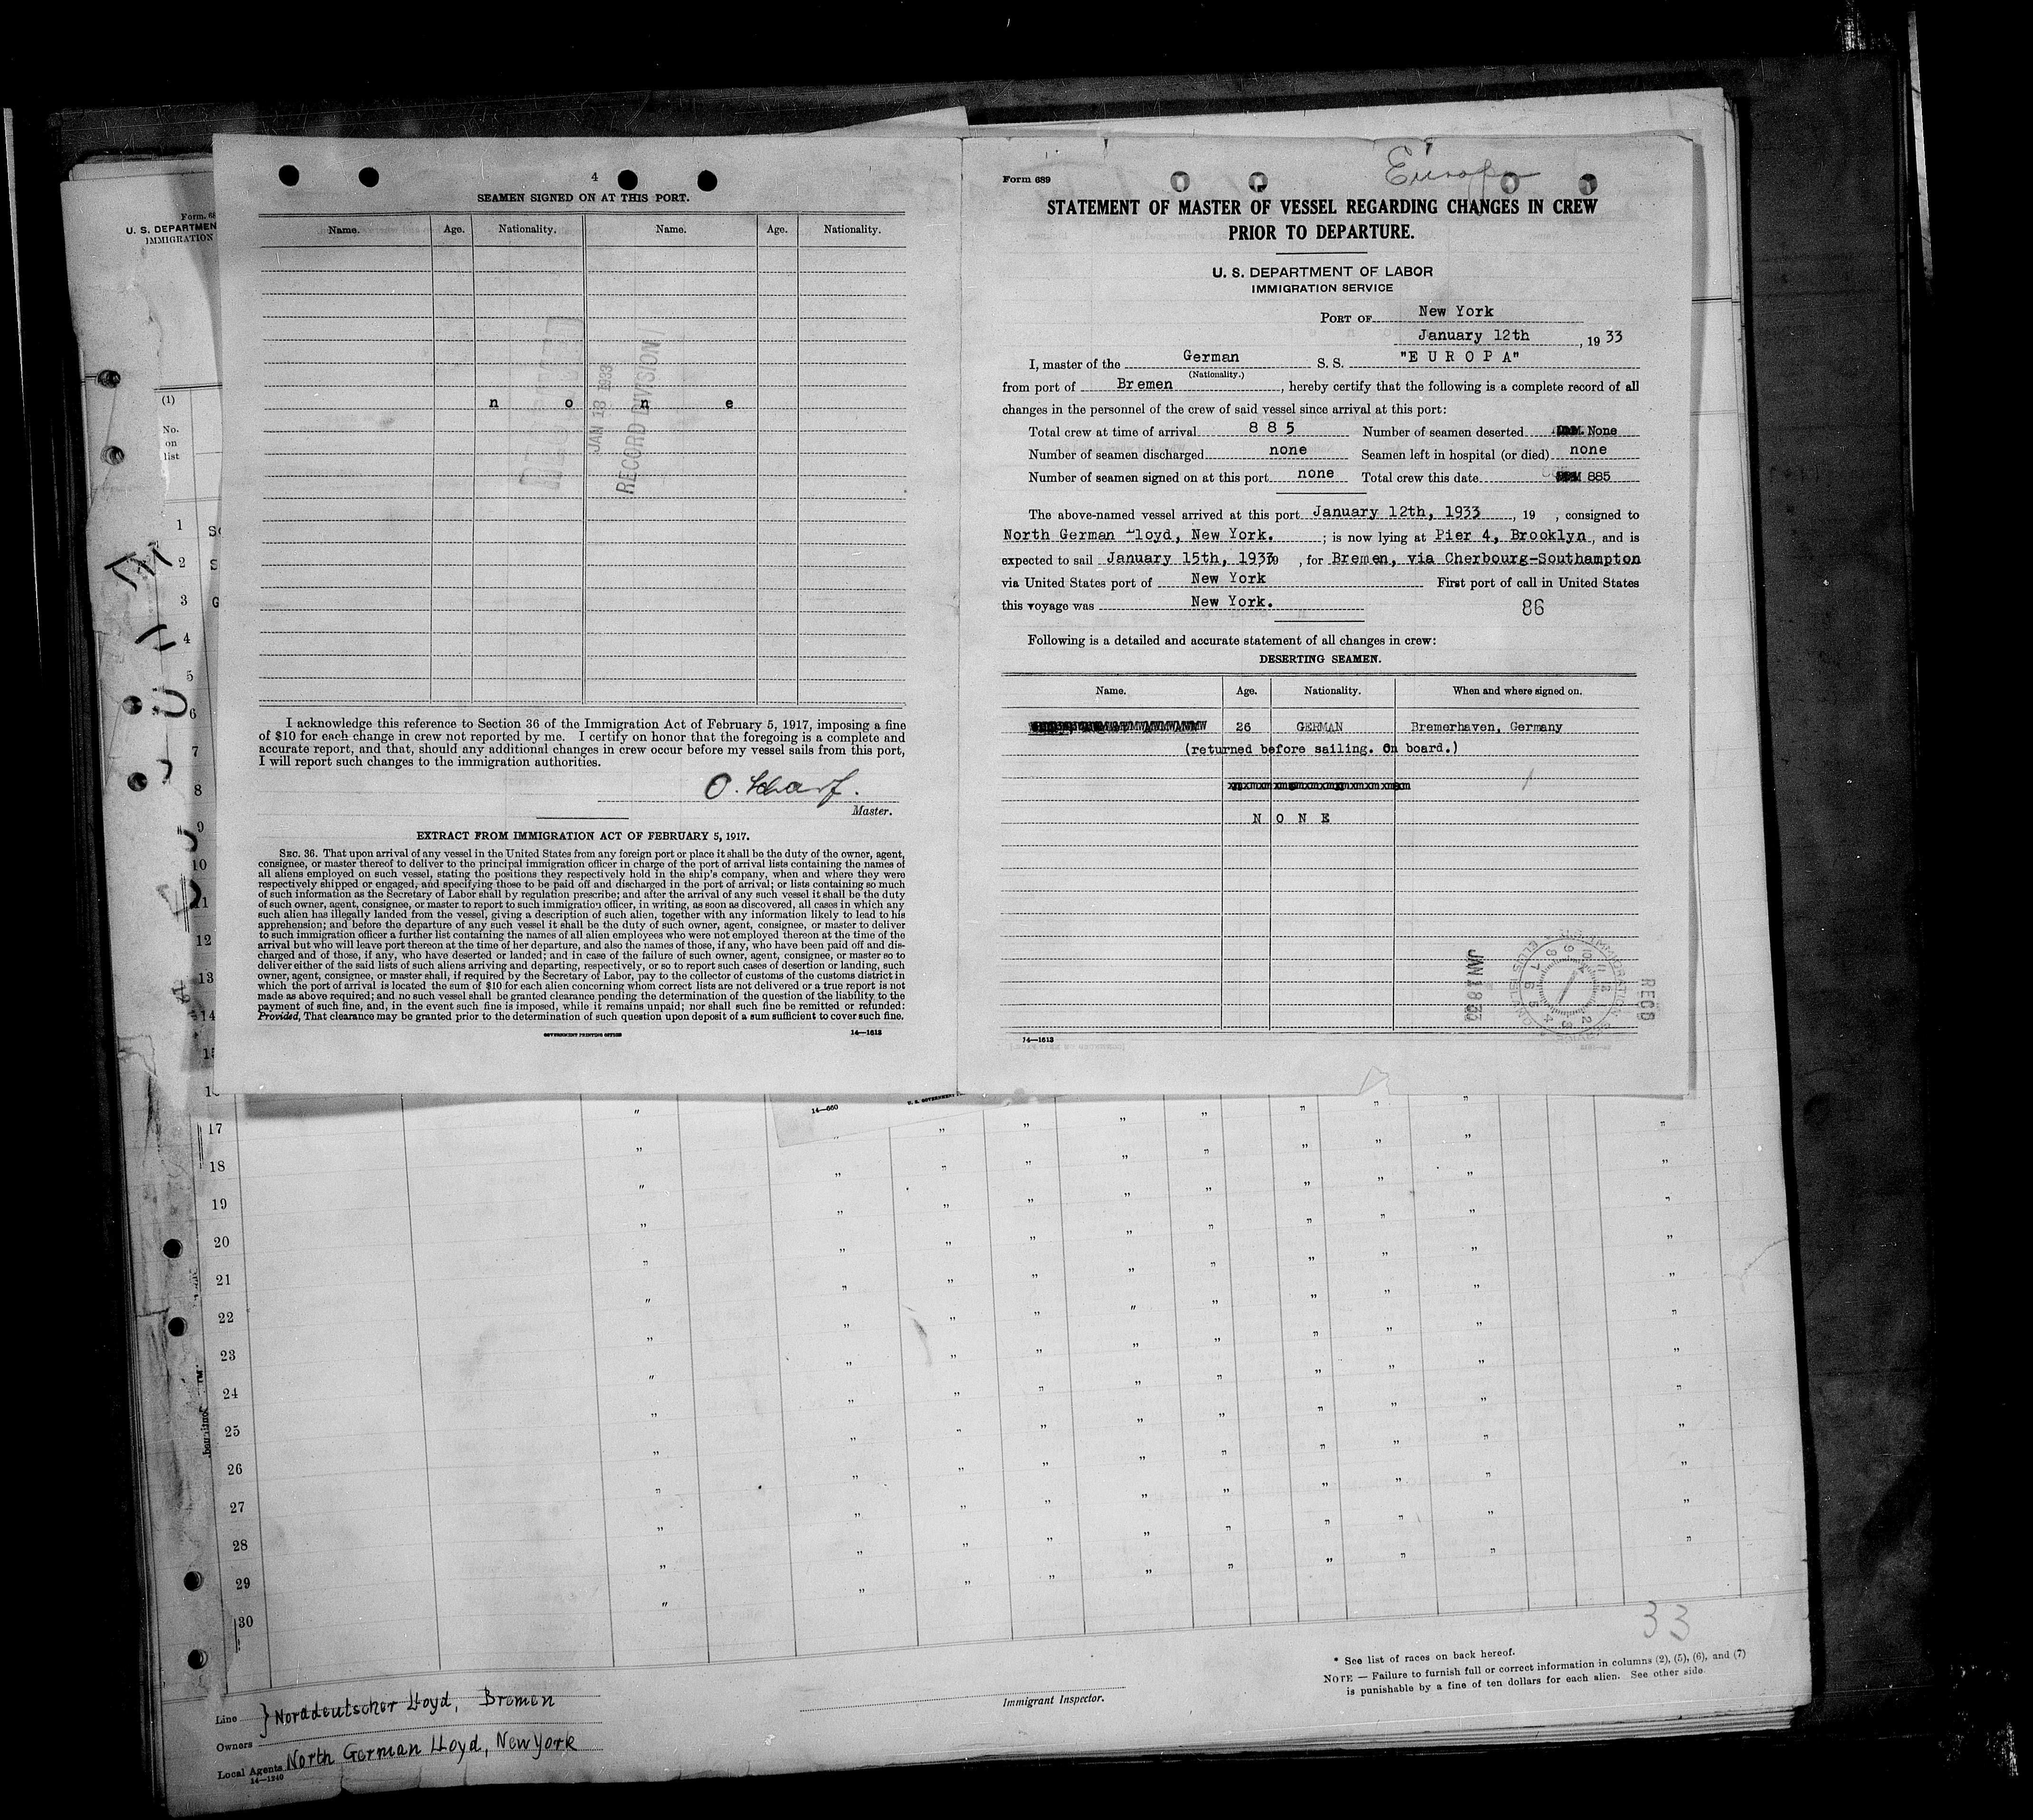 4
SEAMEN SIGNED ON AT THIS PORT.
Name. Age. Nationality. Name. Age. Nationality.
n o n e
JAN 18 1933
RECORD DIVISION
I acknowledge this reference to Section 36 of the Immigration Act of February 5, 1917, imposing a fine
of $10 for each change in crew not reported by me. I certify on honor that the foregoing is a complete and
accurate report, and that, should any additional changes in crew occur before my vessel sails from this port,
I will report such changes to the immigration authorities.
O. Scharf.
Master.
EXTRACT FROM IMMIGRATION ACT OF FEBRUARY 5, 1917.
SEC. 36. That upon arrival of any vessel in the United States from any foreign port or place it shall be the duty of the owner, agent,
consignee, or master thereof to deliver to the principal immigration officer in charge of the port of arrival lists containing the names of
all aliens employed on such vessel, stating the positions they respectively hold in the ship's company, when and where they were
respectively shipped or engaged, and specifying those to be paid off and discharged in the port of arrival; or lists containing so much
of such information as the Secretary of Labor shall by regulation prescribe; and after the arrival of any such vessel it shall be the duty
of such owner, agent, consignee, or master to report to such immigration officer, in writing, as soon as discovered, all cases in which any
such alien has illegally landed from the vessel, giving a description of such alien, together with any information likely to lead to his
apprehension; and before the departure of any such vessel it shall be the duty of such owner, agent, consignee, or master to deliver
to such immigration officer a further list containing the names of all alien employees who were not employed thereon at the time of the
arrival but who will leave port thereon at the time of her departure, and also the names of those, if any, who have been paid off and dis-
charged and of those, if any, who have deserted or landed; and in case of the failure of such owner, agent, consignee, or master so to
deliver either of the said lists of such aliens arriving and departing, respectively, or so to report such cases of desertion or landing, such
owner, agent, consignee, or master shall, if required by the Secretary of Labor, pay to the collector of customs of the customs district in
which the port of arrival is located the sum of $10 for each alien concerning whom correct lists are not delivered or a true report is not
made as above required; and no such vessel shall be granted clearance pending the determination of the question of the liability to the
payment of such fine, and, in the event such fine is imposed, while it remains unpaid; nor shall such fine be remitted or refunded:
Provided, That clearance may be granted prior to the determination of such question upon deposit of a sum sufficient to cover such fine.
GOVERNMENT PRINTING OFFICE 14—1613
Europa
Form 689
STATEMENT OF MASTER OF VESSEL REGARDING CHANGES IN CREW
PRIOR TO DEPARTURE.
U. S. DEPARTMENT OF LABOR
IMMIGRATION SERVICE
PORT OF New York
January 12th, 19 33
I, master of the German S. S. "E U R O P A"
(Nationality.)
from port of Bremen, hereby certify that the following is a complete record of all
changes in the personnel of the crew of said vessel since arrival at this port:
Total crew at time of arrival 8 8 5 Number of seamen deserted None
Number of seamen discharged none Seamen left in hospital (or died) none
Number of seamen signed on at this port none Total crew this date 885
The above-named vessel arrived at this port January 12th, 1933, 19 , consigned to
North German Lloyd, New York. ; is now lying at Pier 4, Brooklyn, and is
expected to sail January 15th, 1933 , for Bremen, via Cherbourg-Southampton
via United States port of New York First port of call in United States
this voyage was New York.
86
Following is a detailed and accurate statement of all changes in crew:
DESERTING SEAMEN.
Name. Age. Nationality. When and where signed on.
26 GERMAN Bremerhaven, Germany
(returned before sailing. On board.)
N O N E
REC'D
14—1613
Form. 68
U. S. DEPARTMEN
IMMIGRATION
(1)
No.
on
list
1
2
3
4
5
6
7
8
9
10
11
12
13
14
15
14—660
17
18
19
20
21
22
23
24
25
26
27
28
29
30
33
* See list of races on back hereof.
NOTE — Failure to furnish full or correct information in columns (2), (5), (6), and (7)
is punishable by a fine of ten dollars for each alien. See other side.
Immigrant Inspector.
Line } Norddeutscher Lloyd, Bremen
Owners
Local Agents North German Lloyd, New York
14—1240